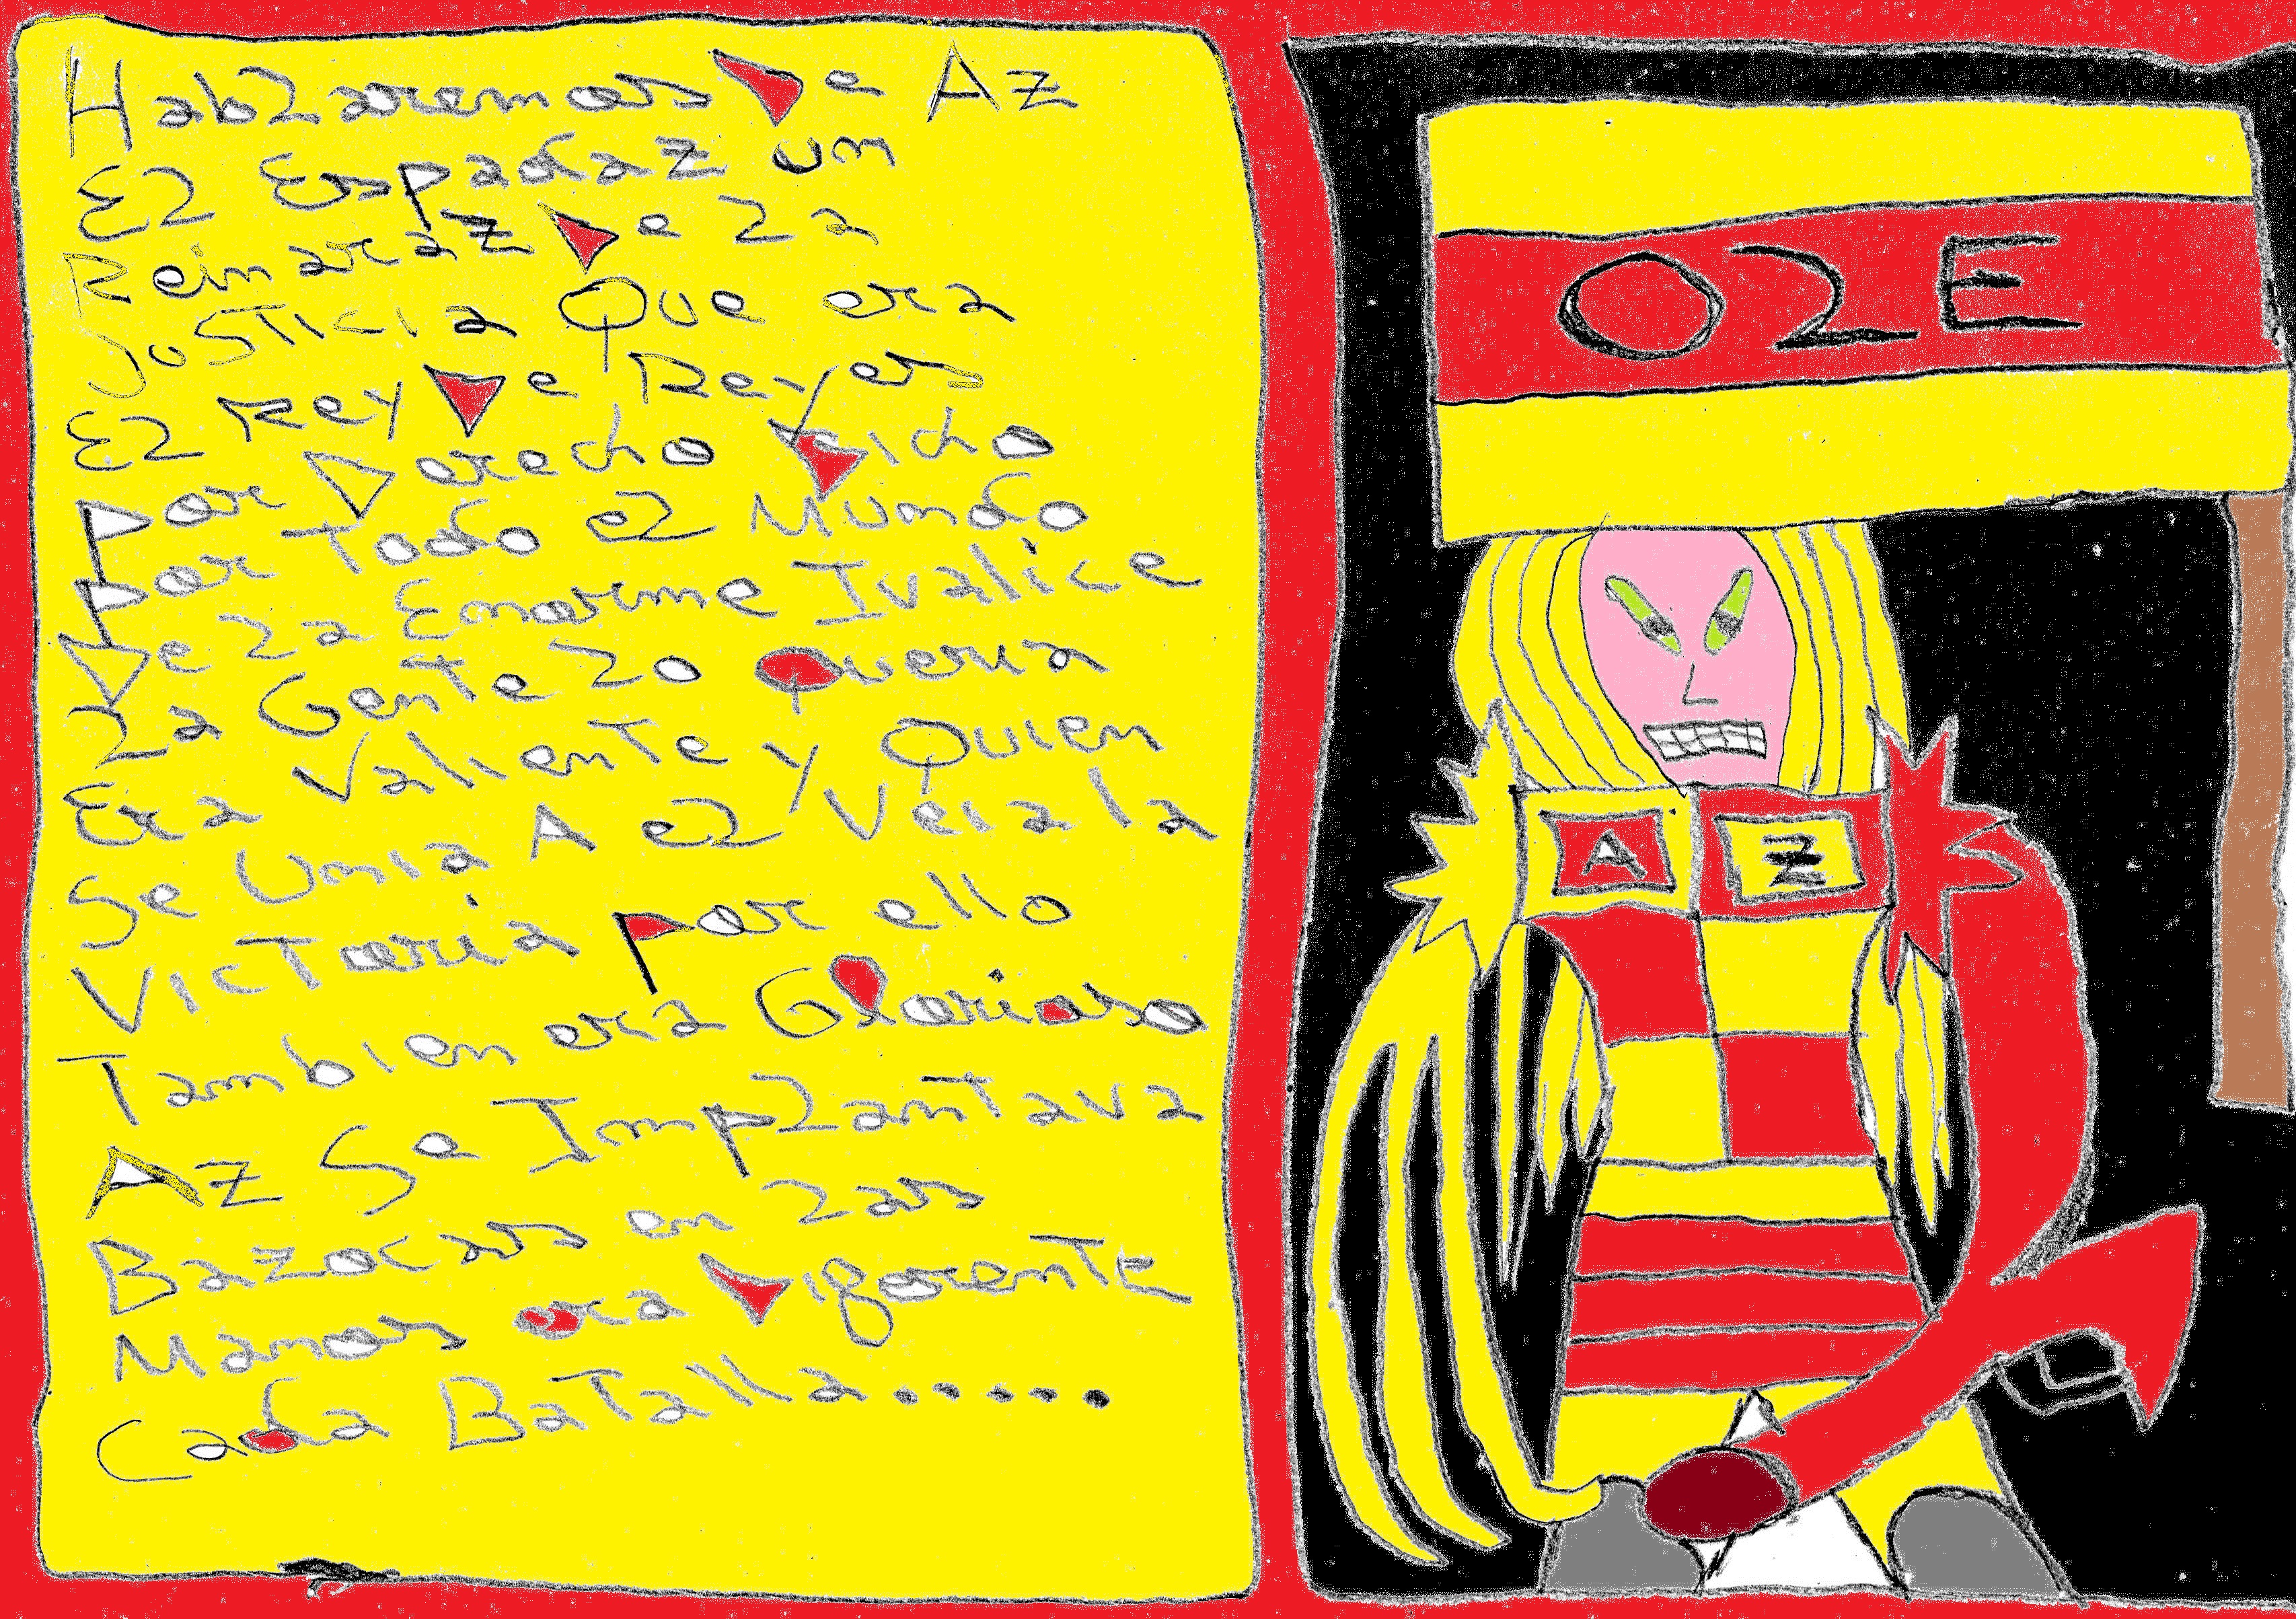 Hablaremos De Az
El Espadaz un
Reinaraz De la
Justicia Que era
El Rey De Reyes
Por Derecho Dicho
Por Todo el Mundo
De la Enorme Ivalice
la Gente lo Queria
Era Valiente y Quien
Se Unia A el Veia la
Victoria Por ello
Tambien era Glorioso
Az Se Implantava
Bazocas en las
Manos era Digerente
Cada Batalla.....
OLE
A Z